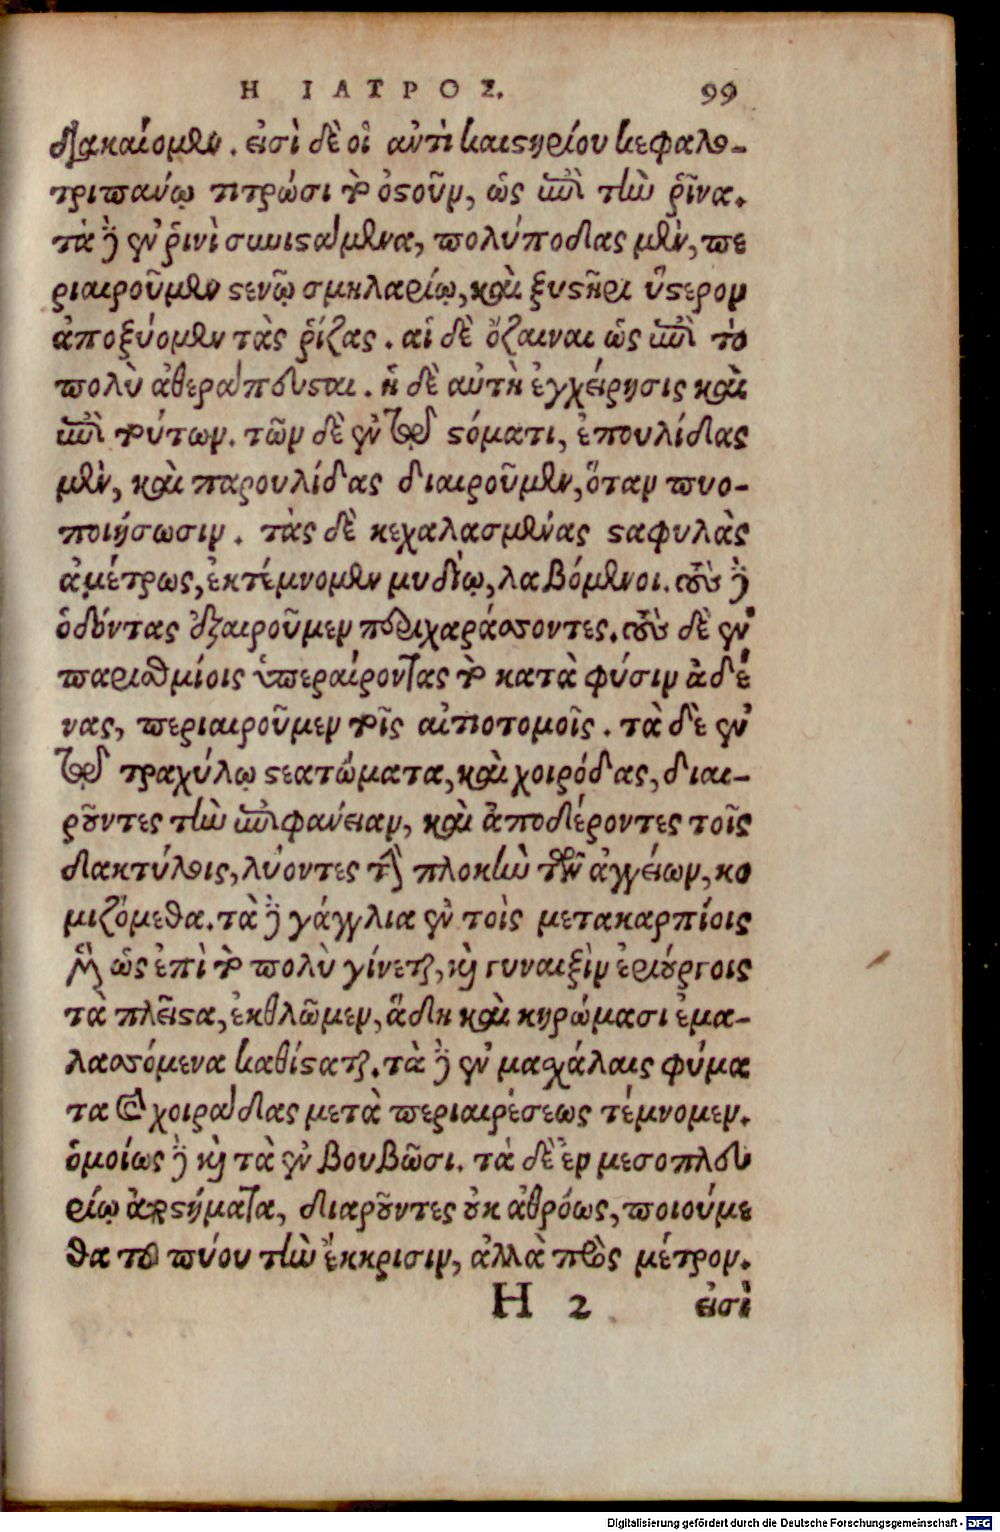 Η ΙΑΤΡΟΣ. 99
διακαίομεν. εἰσὶ δὲ οἳ ἀντὶ καιστηρίου κεφαλο-
τριπάνῳ τιτρῶσι τὸ ὀστοῦν, ὡς ἐπὶ τὴν ῥῖνα.
τὰ δὲ ἐν ῥινὶ συνιστάμενα, πολύποδας μὲν, πε
ριαιροῦμεν στενῷ σμηλαρίῳ, καὶ ξυστῆρι ὕστερον
ἀποξύομεν τὰς ῥίζας. αἱ δὲ ὄζαιναι ὡς ἐπὶ τὸ
πολὺ ἀθεράπευται. ἡ δὲ αὐτὴ ἐγχείρησις καὶ
ἐπὶ τούτων. τῶν δὲ ἐν τῷ στόματι, ἐπουλίδας
μὲν, καὶ παρουλίδας διαιροῦμεν, ὅταν πυο-
ποιήσωσιν. τὰς δὲ κεχαλασμένας σταφυλὰς
ἀμέτρως, ἐκτέμνομεν μυδίῳ, λαβόμενοι. τοὺς δὲ
ὀδόντας ἐξαιροῦμεν περιχαράσσοντες. τοὺς δὲ ἐν
παρισθμίοις ὑπεραίροντας τὸ κατὰ φύσιν ἀδέ
νας, περιαιροῦμεν τοῖς ἀιποτομοῖς. τὰ δὲ ἐν
τῷ τραχύλῳ στεατώματα, καὶ χοιρόδας, διαι-
ροῦντες τὴν ἐπιφανείαν, καὶ ἀποδέροντες τοῖς
δακτύλοις, λύοντες τὴν πλοκὴν τῶν ἀγγείων, κο
μιζόμεθα. τὰ δὲ γάγγλια ἐν τοὶς μετακαρπίοις
μὲν ὡς ἐπὶ τὸ πολὺ γίνεται, καὶ γυναιξὶν ἐριούργοις
τὰ πλεῖστα, ἐκθλῶμεν, ἄδη καὶ κηρώμασι ἐμα-
λασσόμενα καθίσταται. τὰ δὲ ἐν μαχάλαις φύμα
τα καὶ χοιράδας μετὰ περιαιρέσεως τέμνομεν.
ὁμοίως δὲ καὶ τὰ ἐν βουβῶσι. τὰ δὲ ἐν μεσοπλευ
ρίῳ ἀποστήματα, διαροῦντες οὐκ ἀθρόως, ποιούμε
θα τοῦ πύου τὴν ἔκκρισιν, ἀλλὰ πρὸς μέτρον.
H 2 εἰσὶ
Digitalisierung gefördert durch die Deutsche Forschungsgemeinschaft - DFG